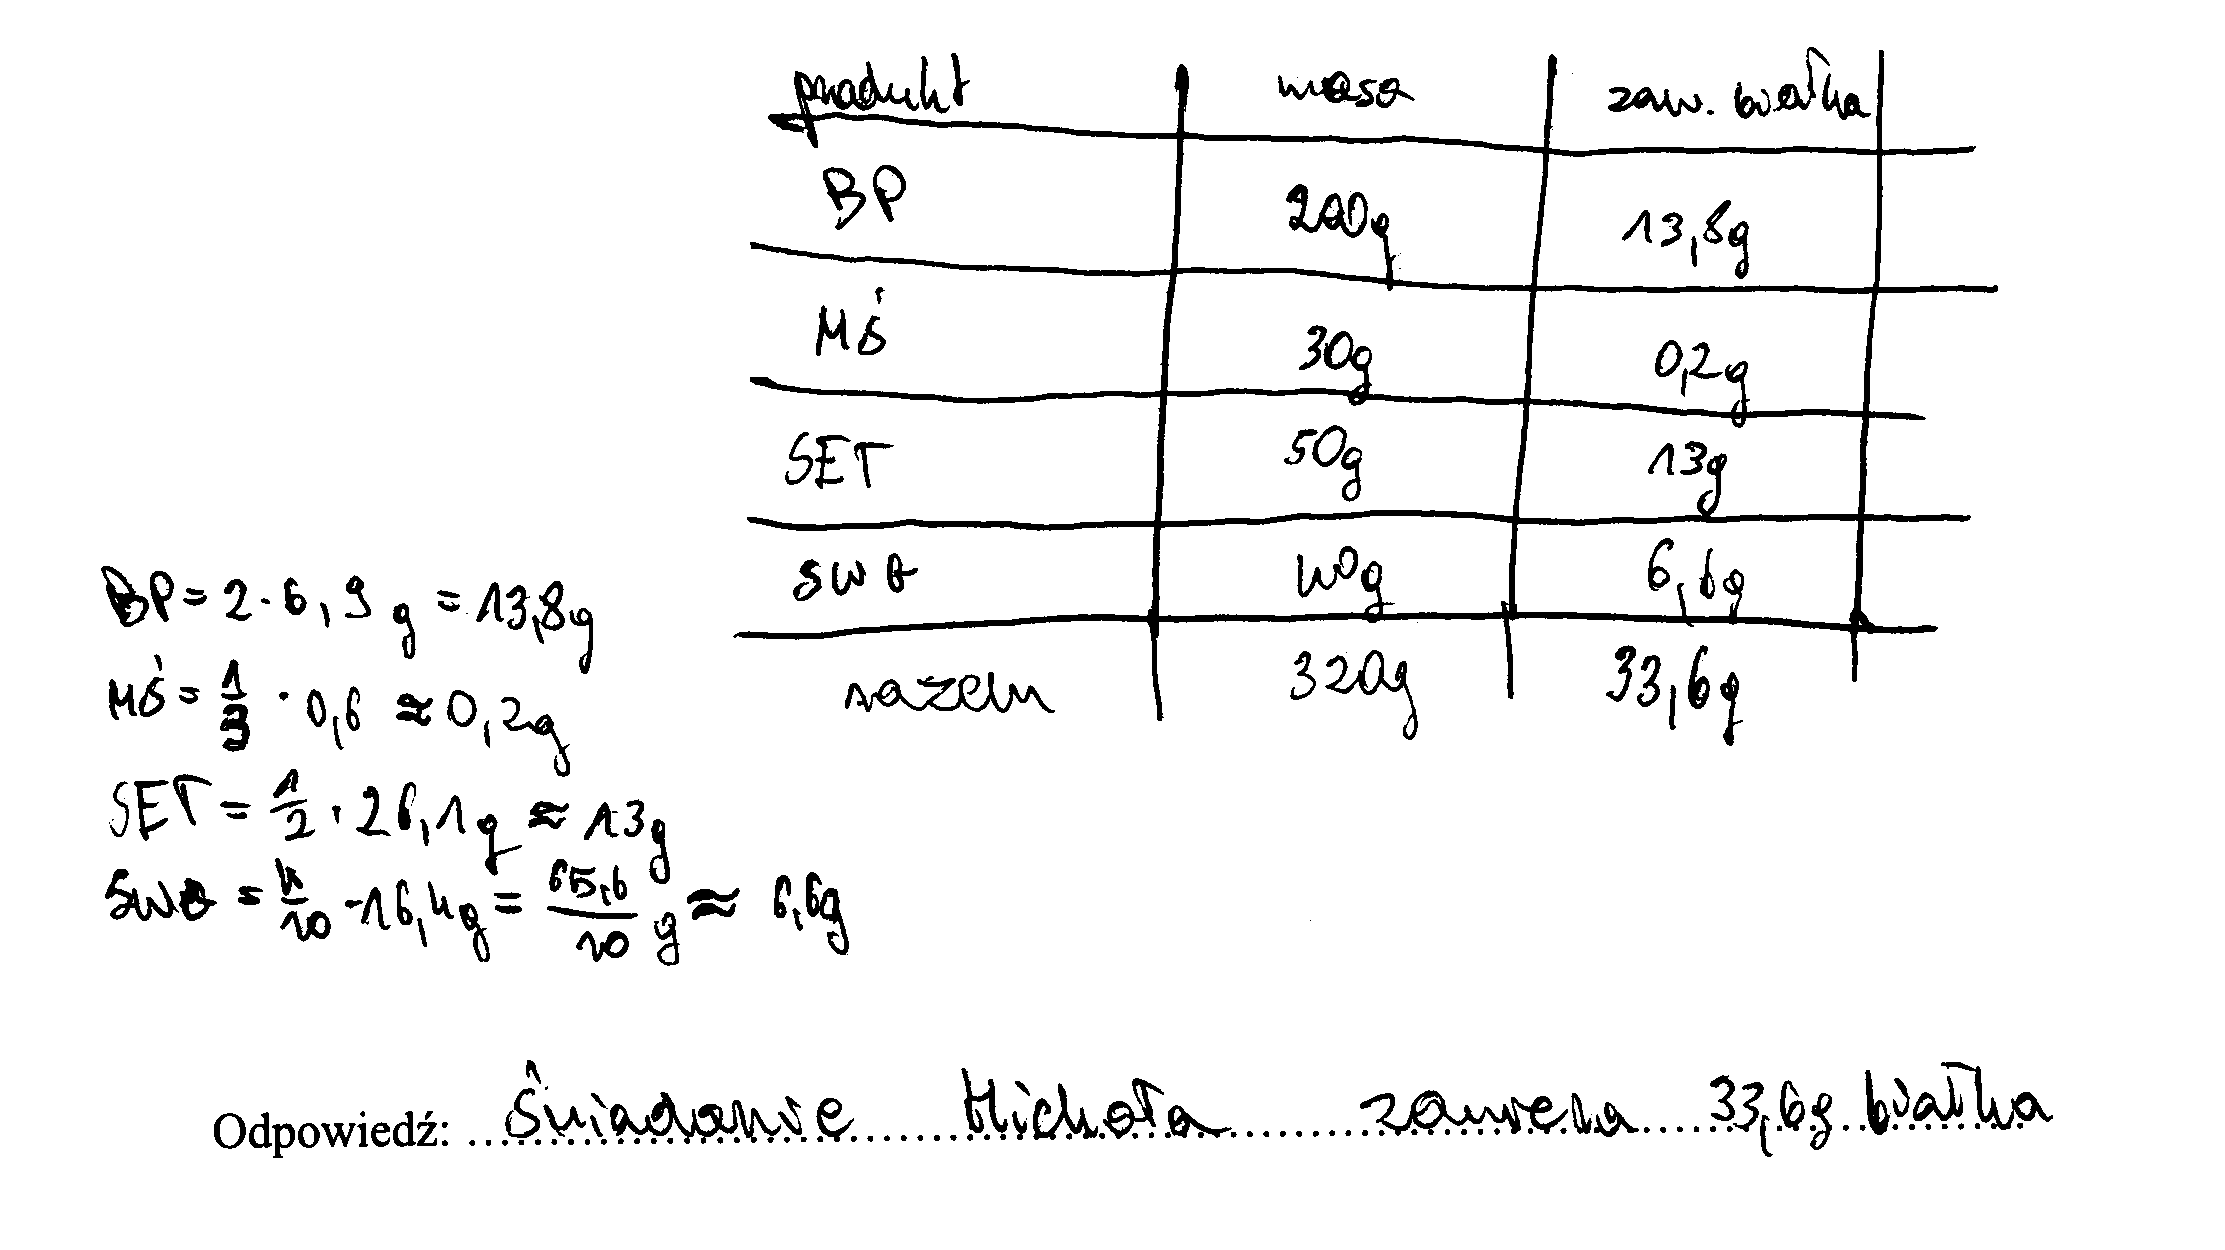 produkt masa zaw. białka
BP 200g 13,8g
MŚ 30g 0,2g
SET 50g 13g
SWO 40g 6,6g
razem 320g 33,6g
BP = 2 · 6,9 g = 13,8g
MŚ = 1/3 · 0,6 ≈ 0,2g
SET = 1/2 · 26,1g ≈ 13g
SWO = 4/10 · 16,4g = 65,6/10 g ≈ 6,6g
Odpowiedź: Śniadanie Michała zawiera 33,6g białka